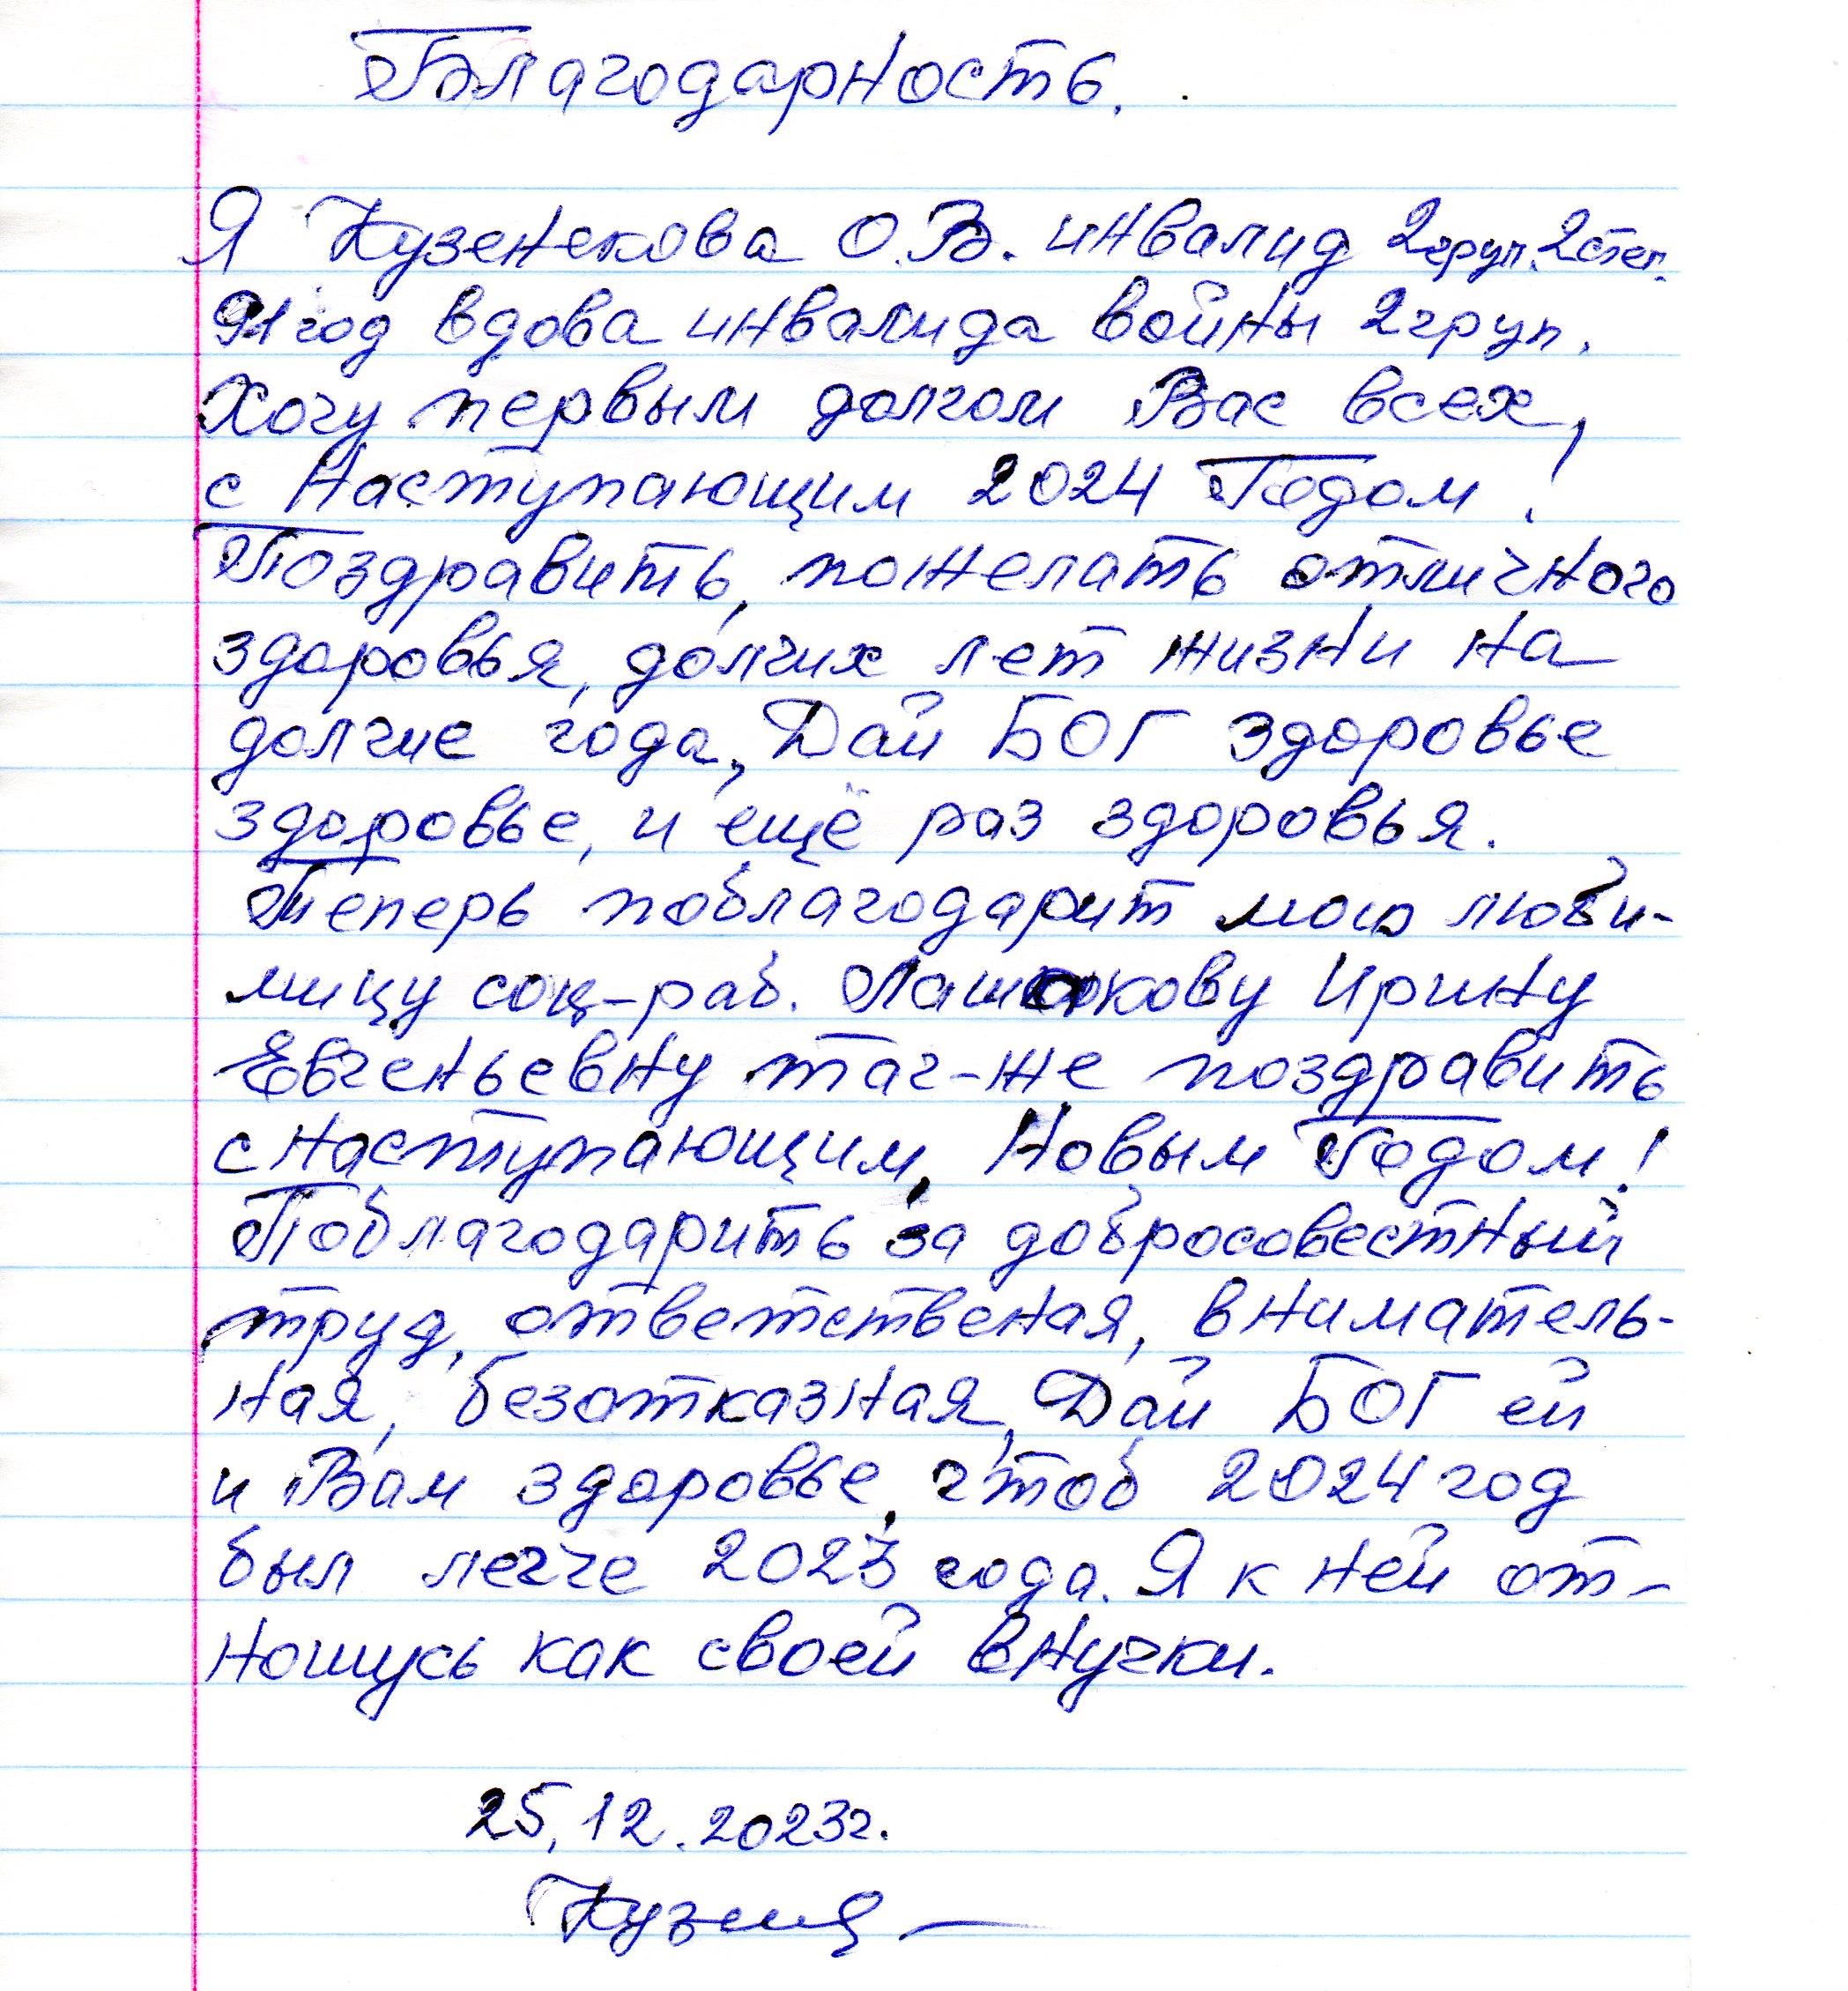 Благодарность.
Я Кузенекова О.В. инвалид 2груп. 2степ.
91 год вдова инвалида войны 2груп.
Хочу первым долгом Вас всех,
с Наступающим 2024 Годом!
Поздравить, пожелать отличного
здоровья, долгих лет жизни на
долгие года, Дай БОГ здоровье
здоровье, и ещё раз здоровья.
Теперь поблагодарит мою люби-
мицу соц-раб. Ирину
Евгеньевну таг-же поздравить
с наступающим, Новым Годом!
Поблагодарить за добросовестный
труд, ответственая, вниматель-
ная, безотказная, Дай БОГ ей
и Вам здоровье, чтоб 2024 год
был легче 2023 года. Я к ней от-
ношусь как своей внучки.
25.12.2023г.